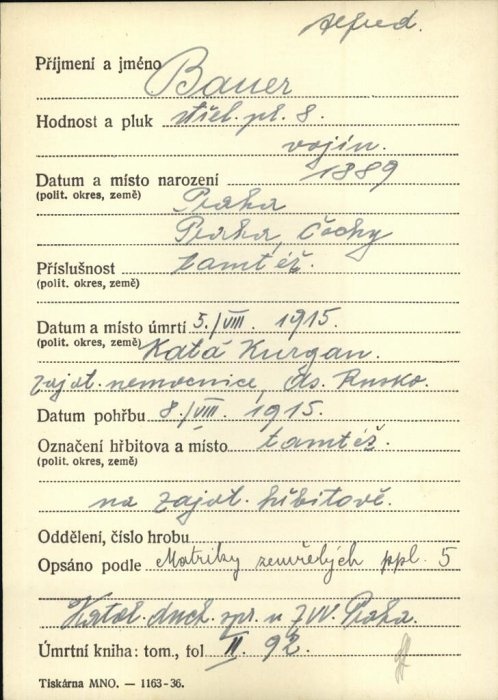 Alfred.
Příjmení a jméno Bauer
Hodnost a pluk střel. pl. 8.
vojín.
Datum a místo narození 1889
(polit. okres, země) Praha
Praha, Čechy
Příslušnost tamtéž.
(polit. okres, země)
Datum a místo úmrtí 5./VIII. 1915.
(polit. okres, země) Katá Kurgan.
zajat. nemocnice, as. Rusko.
Datum pohřbu 8./VIII. 1915.
Označení hřbitova a místo tamtéž.
(polit. okres, země)
na zajat. hřbitově.
Oddělení, číslo hrobu
Opsáno podle Matriky zemřelých ppl. 5
Katol. duch. spr. u ZVV. Praha.
Úmrtní kniha: tom., fol II. 92.
Tiskárna MNO. — 1163-36.